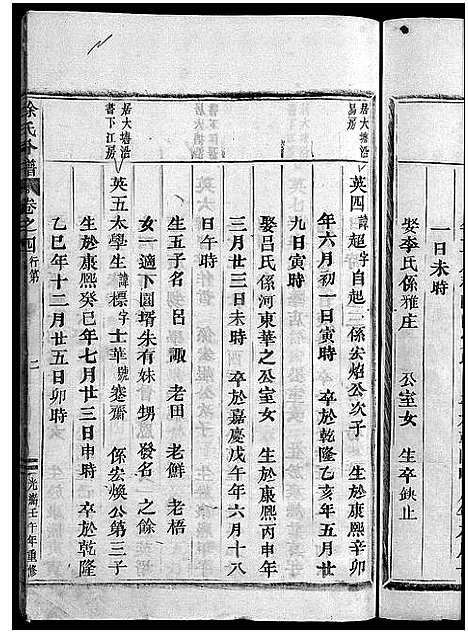 一日未時
娶李氏係雅庄　公室女　生卒缺止
居大塘沿易房
英四諱超字自起係宏焰公次子　生於康熙辛卯
年六月初一日寅時　卒於乾隆乙亥年五月廿
九日寅時
娶呂氏係河東華之公室女　生於康熙丙申年
三月廿三日未時　卒於嘉慶戊午年六月十八
日午時
生五子名　呂諏　老田　老鮮　老梧
女一適下園壻朱有妹　甥　發名　之餘
居大塘沿書下江房
英五太學生諱標字士華號蹇齋　係宏煥公第三子
生於康熙癸巳年七月廿三日申時　卒於乾隆
乙巳年十二月廿五日卯時
徐氏合譜　卷之四　行第　二　光緒壬午年重修